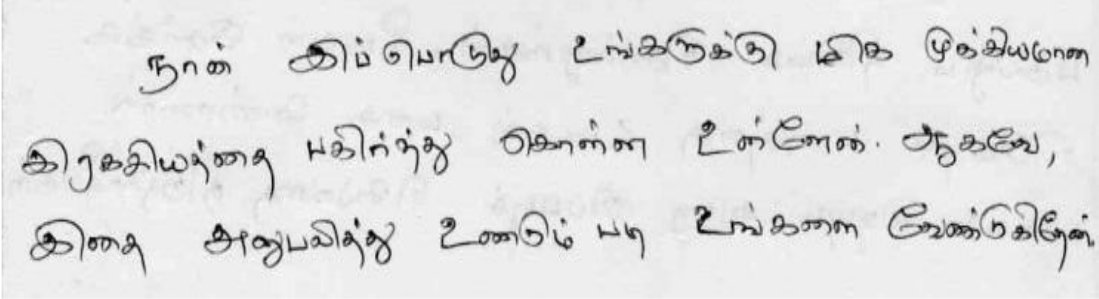 நான் இப்பொழுது உங்களுக்கு மிக முக்கியமான
இரகசியத்தை பகிர்ந்து கொள்ள உள்ளேன். ஆகவே,
இதை அனுபவித்து உணரும் படி உங்களை வேண்டுகிறேன்.